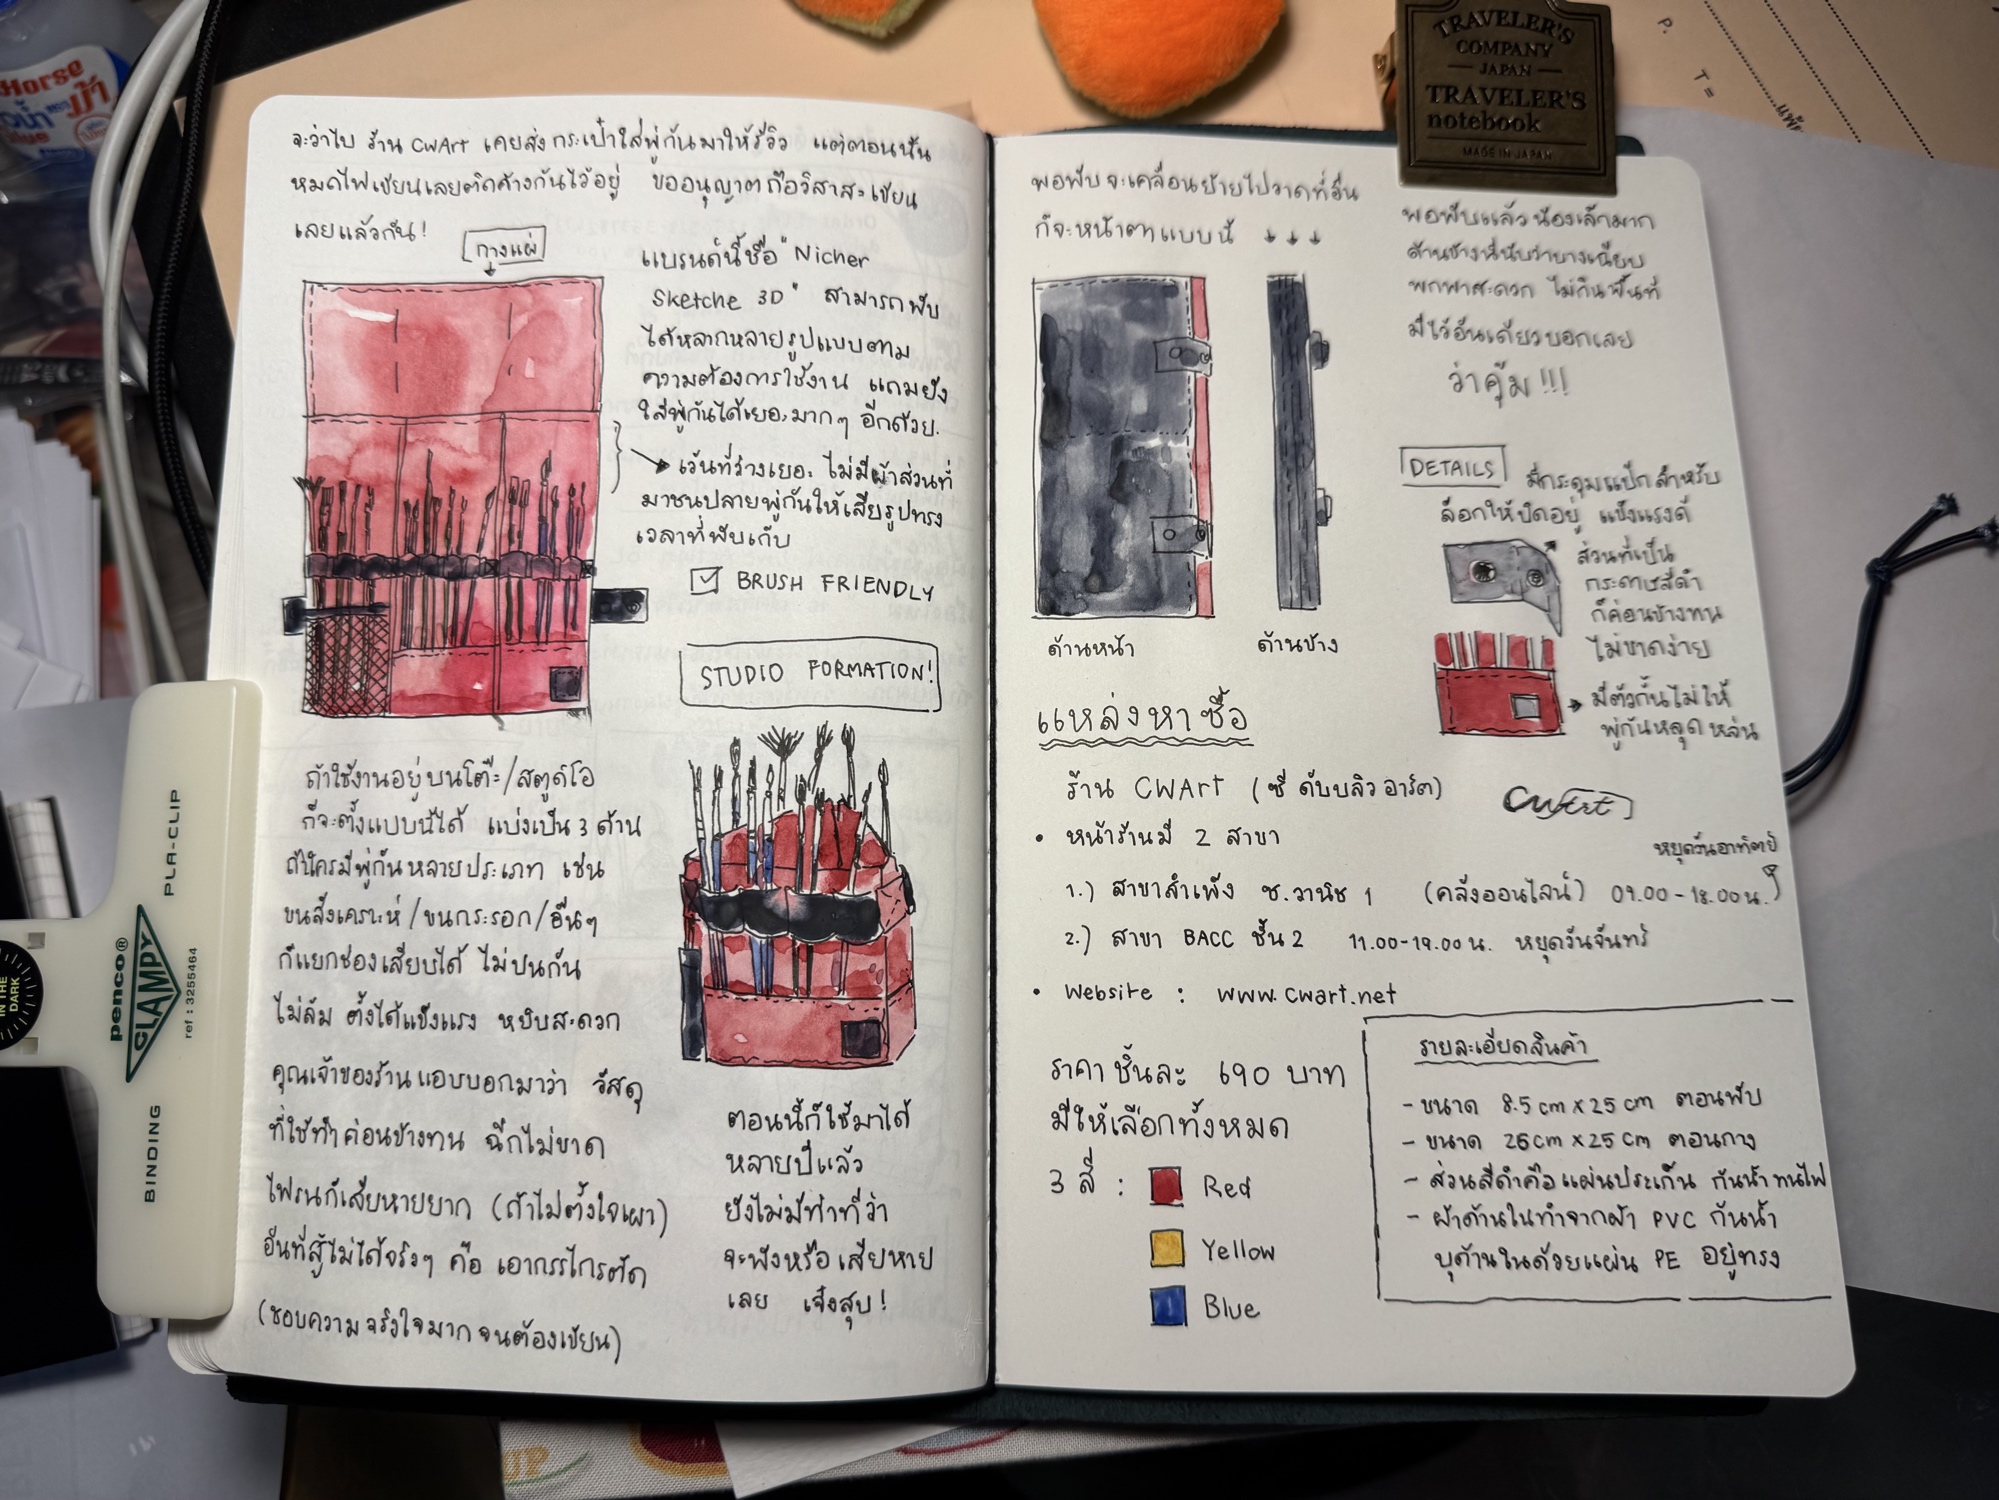 จะว่าไป ร้าน CWArt เคยส่งกระเป๋าใส่พู่กันมาให้รีวิว แต่ตอนนั้น
หมดไฟเขียนเลยติดค้างกันไว้อยู่ ขออนุญาตถือวิสาสะเขียน
เลยแล้วกัน!
กางแผ่
แบรนด์นี้ชื่อ "Nicher
Sketche 3D" สามารถพับ
ได้หลากหลายรูปแบบตาม
ความต้องการใช้งาน แถมยัง
ใส่พู่กันได้เยอะมากๆ อีกด้วย.
เว้นที่ว่างเยอะ ไม่มีผ้าส่วนที่
มาชนปลายพู่กันให้เสียรูปทรง
เวลาที่พับเก็บ
BRUSH FRIENDLY
STUDIO FORMATION!
ถ้าใช้งานอยู่บนโต๊ะ/สตูดิโอ
ก็จะตั้งแบบนี้ได้ แบ่งเป็น 3 ด้าน
ถ้าใครมีพู่กันหลายประเภท เช่น
ขนสังเคราะห์/ขนกระรอก/อื่นๆ
ก็แยกช่องเสียบได้ ไม่ปนกัน
ไม่ล้ม ตั้งได้แข็งแรง หยิบสะดวก
คุณเจ้าของร้านแอบบอกมาว่า วัสดุ
ที่ใช้ทำค่อนข้างทน ฉีกไม่ขาด
ไฟรนก็เสียหายยาก (ถ้าไม่ตั้งใจเผา)
อันที่สู้ไม่ได้จริงๆ คือ เอากรรไกรตัด
(ชอบความจริงใจมากจนต้องเขียน)
ตอนนี้ก็ใช้มาได้
หลายปีแล้ว
ยังไม่มีท่าที่ว่า
จะพังหรือเสียหาย
เลย เจ๋งสุบ!
พอพับจะเคลื่อนย้ายไปวาดที่อื่น
ก็จะหน้าตาแบบนี้ ↓ ↓ ↓
ด้านหน้า
ด้านข้าง
พอพับแล้วน้องเล็กมาก
ด้านข้างนี่นับว่าบางเฉียบ
พกพาสะดวก ไม่กินพื้นที่
มีไว้อันเดียวบอกเลย
ว่าคุ้ม!!!
DETAILS
มีกระดุมแป๊กสำหรับ
ล็อกให้ปิดอยู่ แข็งแรงดี
ส่วนที่เป็น
กระดาษสีดำ
ก็ค่อนข้างทน
ไม่ขาดง่าย
มีตัวกั้นไม่ให้
พู่กันหลุดหล่น
แหล่งหาซื้อ
ร้าน CWArt (ซี ดับบลิว อาร์ต)
Cwart
• หน้าร้านมี 2 สาขา
หยุดวันอาทิตย์
1.) สาขาสำเพ็ง ซ.วานิช 1 (คลังออนไลน์) 09.00-18.00 น.
2.) สาขา BACC ชั้น 2 11.00-19.00 น. หยุดวันจันทร์
• Website : www.cwart.net
ราคาชิ้นละ 690 บาท
มีให้เลือกทั้งหมด
3 สี :
Red
Yellow
Blue
รายละเอียดสินค้า
- ขนาด 8.5 cm x 25 cm ตอนพับ
- ขนาด 26 cm x 25 cm ตอนกาง
- ส่วนสีดำคือแผ่นประเก็น กันน้ำ ทนไฟ
- ผ้าด้านในทำจากผ้า PVC กันน้ำ
บุด้านในด้วยแผ่น PE อยู่ทรง
TRAVELER'S
COMPANY
JAPAN
TRAVELER'S
notebook
MADE IN JAPAN
PLA-CLIP
penco®
CLAMPY
ref : 3255464
BINDING
IN THE
DARK
Horse
ม้า